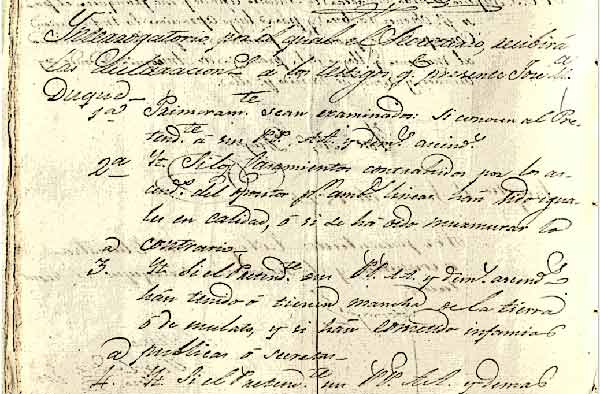 Interrogatorio, por el qual el Secretario, recibirá
las declaracion.s a los testigos q.e presente José
Duque
1.a Primeram.te sean examinados: Si conocen al Pre-
tend.te á sus P.s A.s y dem.s acend.s
2.a Yt. Si los Casamientos contrahidos por los as-
cend.s del por amb.s lineas han sido igua-
les en calidad, ó si se há oido murmurar lo
contrario
3.a Yt. Si el Pretend.te sus P.P. A.A. y dem.s acend.s
hán tenido ó tienen mancha de la tierra
ó de mulato, y si hán cometido infamias
publicas ó secretas
4.a Yt. Si el Pretend.te sus P.P. A.A. y demas